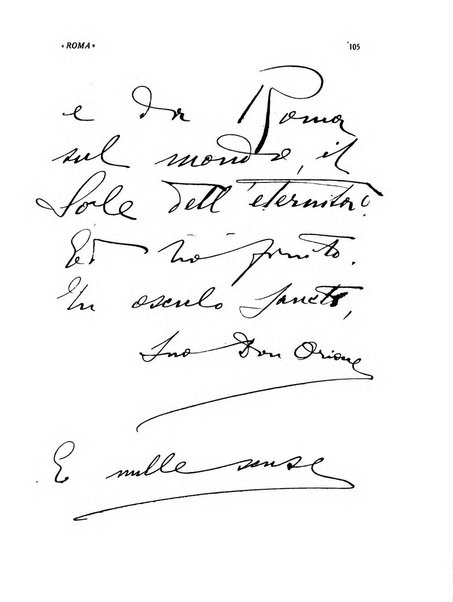 « ROMA » 105
e da Roma
sul mondo, il
Sole dell'eternità.
Ed ho finito.
In osculo Sancto,
Suo Don Orione
E mille scuse